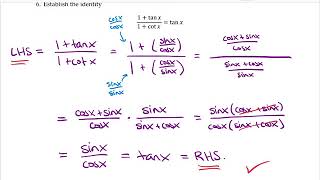 6. Establish the identity
(1 + tan x)/(1 + cot x) = tan x
cosx/cosx
sinx/sinx
LHS = (1 + tanx)/(1 + cotx) = (1 + (sinx/cosx))/(1 + (cosx/sinx)) = ((cosx + sinx)/cosx)/((sinx + cosx)/sinx)
= (cosx + sinx)/cosx · sinx/(sinx + cosx) = sinx(cosx + sinx)/cosx(sinx + cosx)
= sinx/cosx = tanx = RHS. ✓